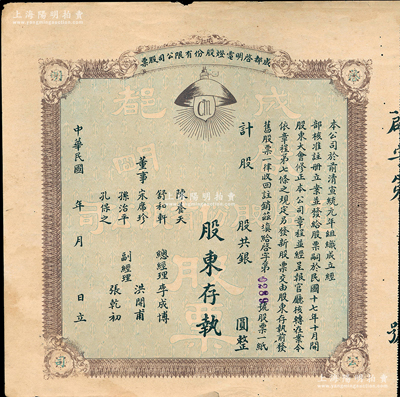 上海陽明拍賣
成都啓明電燈股份有限公司股票
本公司於前清宣統元年組織成立經
部核准註册立案並發給股票嗣於民國十七年十月開
股東大會修正本公司章程並經呈報官廳核轉准案今
依章程第七條之規定另發新股票交由股東存執前發
舊股票一律收回註銷茲填給啓字第 號股票一紙
計股 股共銀 圓整
股東存執
董事
陳養天
舒和軒
宋席珍
孫治平
孔保之
總經理 李成博
副經理
洪開甫
張乾初
中華民國 年 月 日立
成都
明
司
股票
啟字第 號